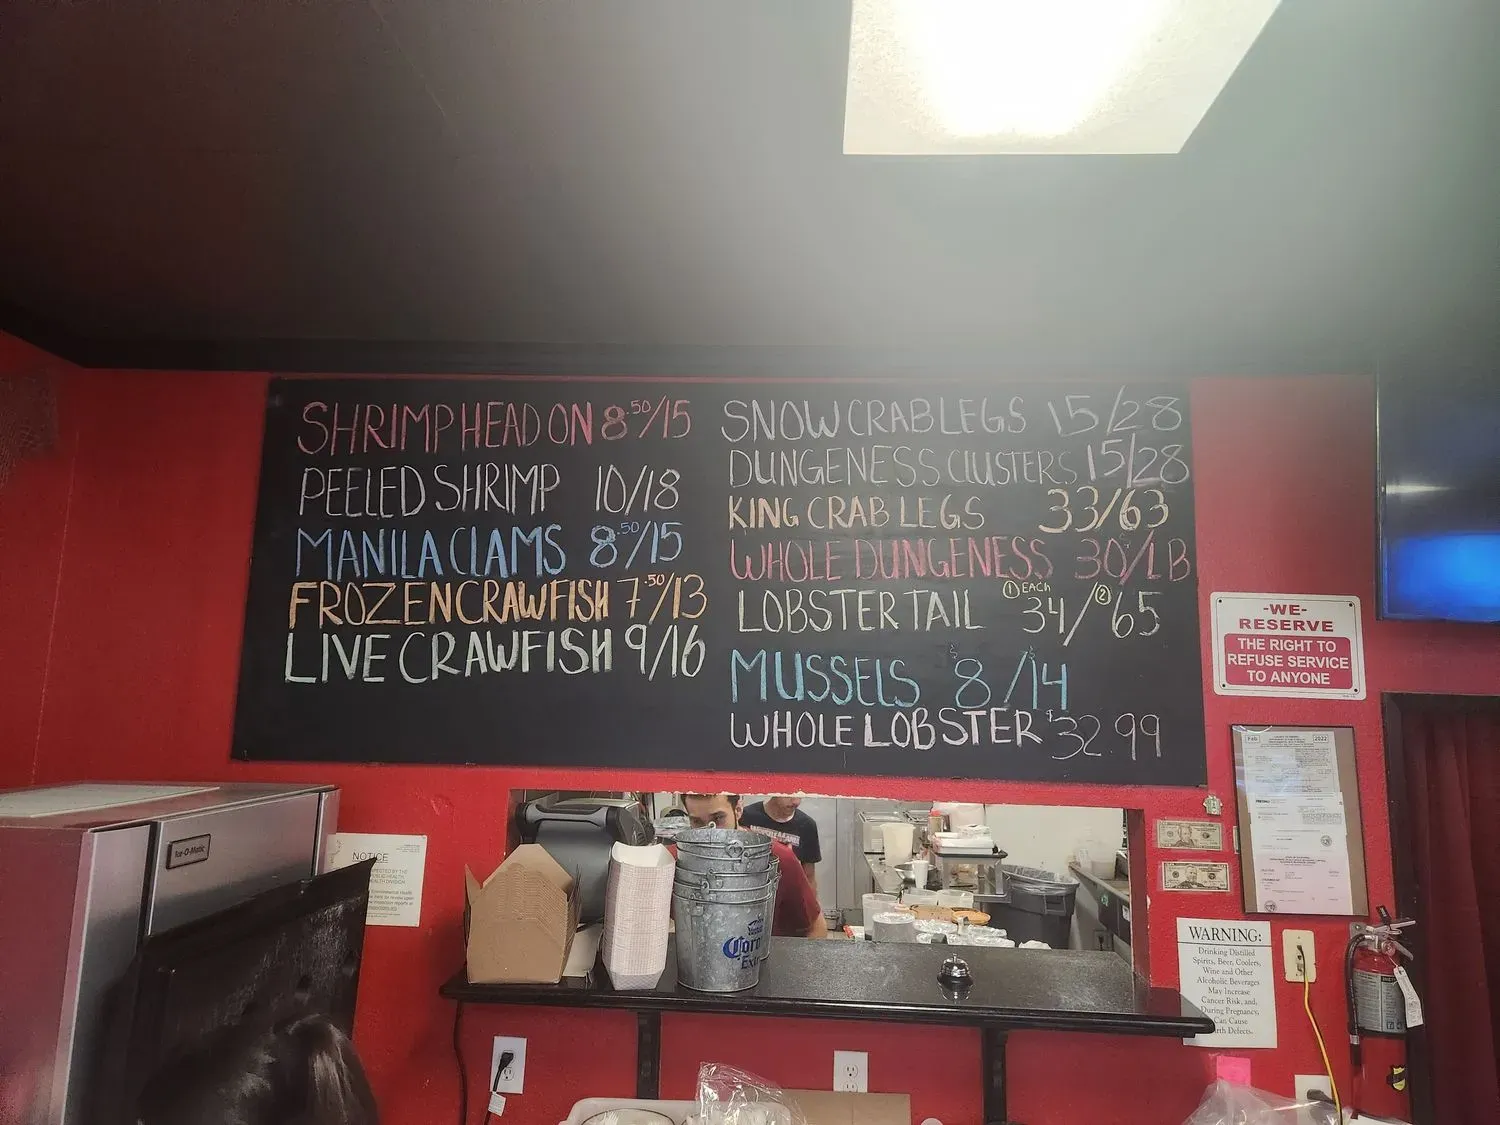 SHRIMP HEAD ON 8.50/15
PEELED SHRIMP 10/18
MANILA CLAMS 8.50/15
FROZEN CRAWFISH 7.50/13
LIVE CRAWFISH 9/16
SNOW CRAB LEGS 15/28
DUNGENESS CLUSTERS 15/28
KING CRAB LEGS 33/63
WHOLE DUNGENESS 30/LB
LOBSTER TAIL ① EACH 34/ ② 65
MUSSELS $8/$14
WHOLE LOBSTER $32.99
-WE-
RESERVE
THE RIGHT TO
REFUSE SERVICE
TO ANYONE
Feb 2022
Ice-O-Matic
NOTICE
Corona
Extra
WARNING:
Drinking Distilled
Spirits, Beer, Coolers,
Wine and Other
Alcoholic Beverages
May Increase
Cancer Risk, and,
During Pregnancy,
Can Cause
Defects.